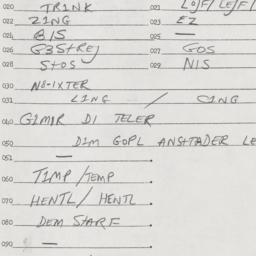 020 TRINK 021 LOJF/LEJF/
022 ZING 023 EZ
024 BIS 025 —
026 G3STREJ 027 GOS
028 STOS 029 NIS
030 NO-IXTER
031 LING / CING
040 GIMIR DI TELER
050 DIM GOPL ANSHTADER LE
051 —
060 TIMP/TEMP
070 HENTL/HENTL
080 DEM STARF
090 —